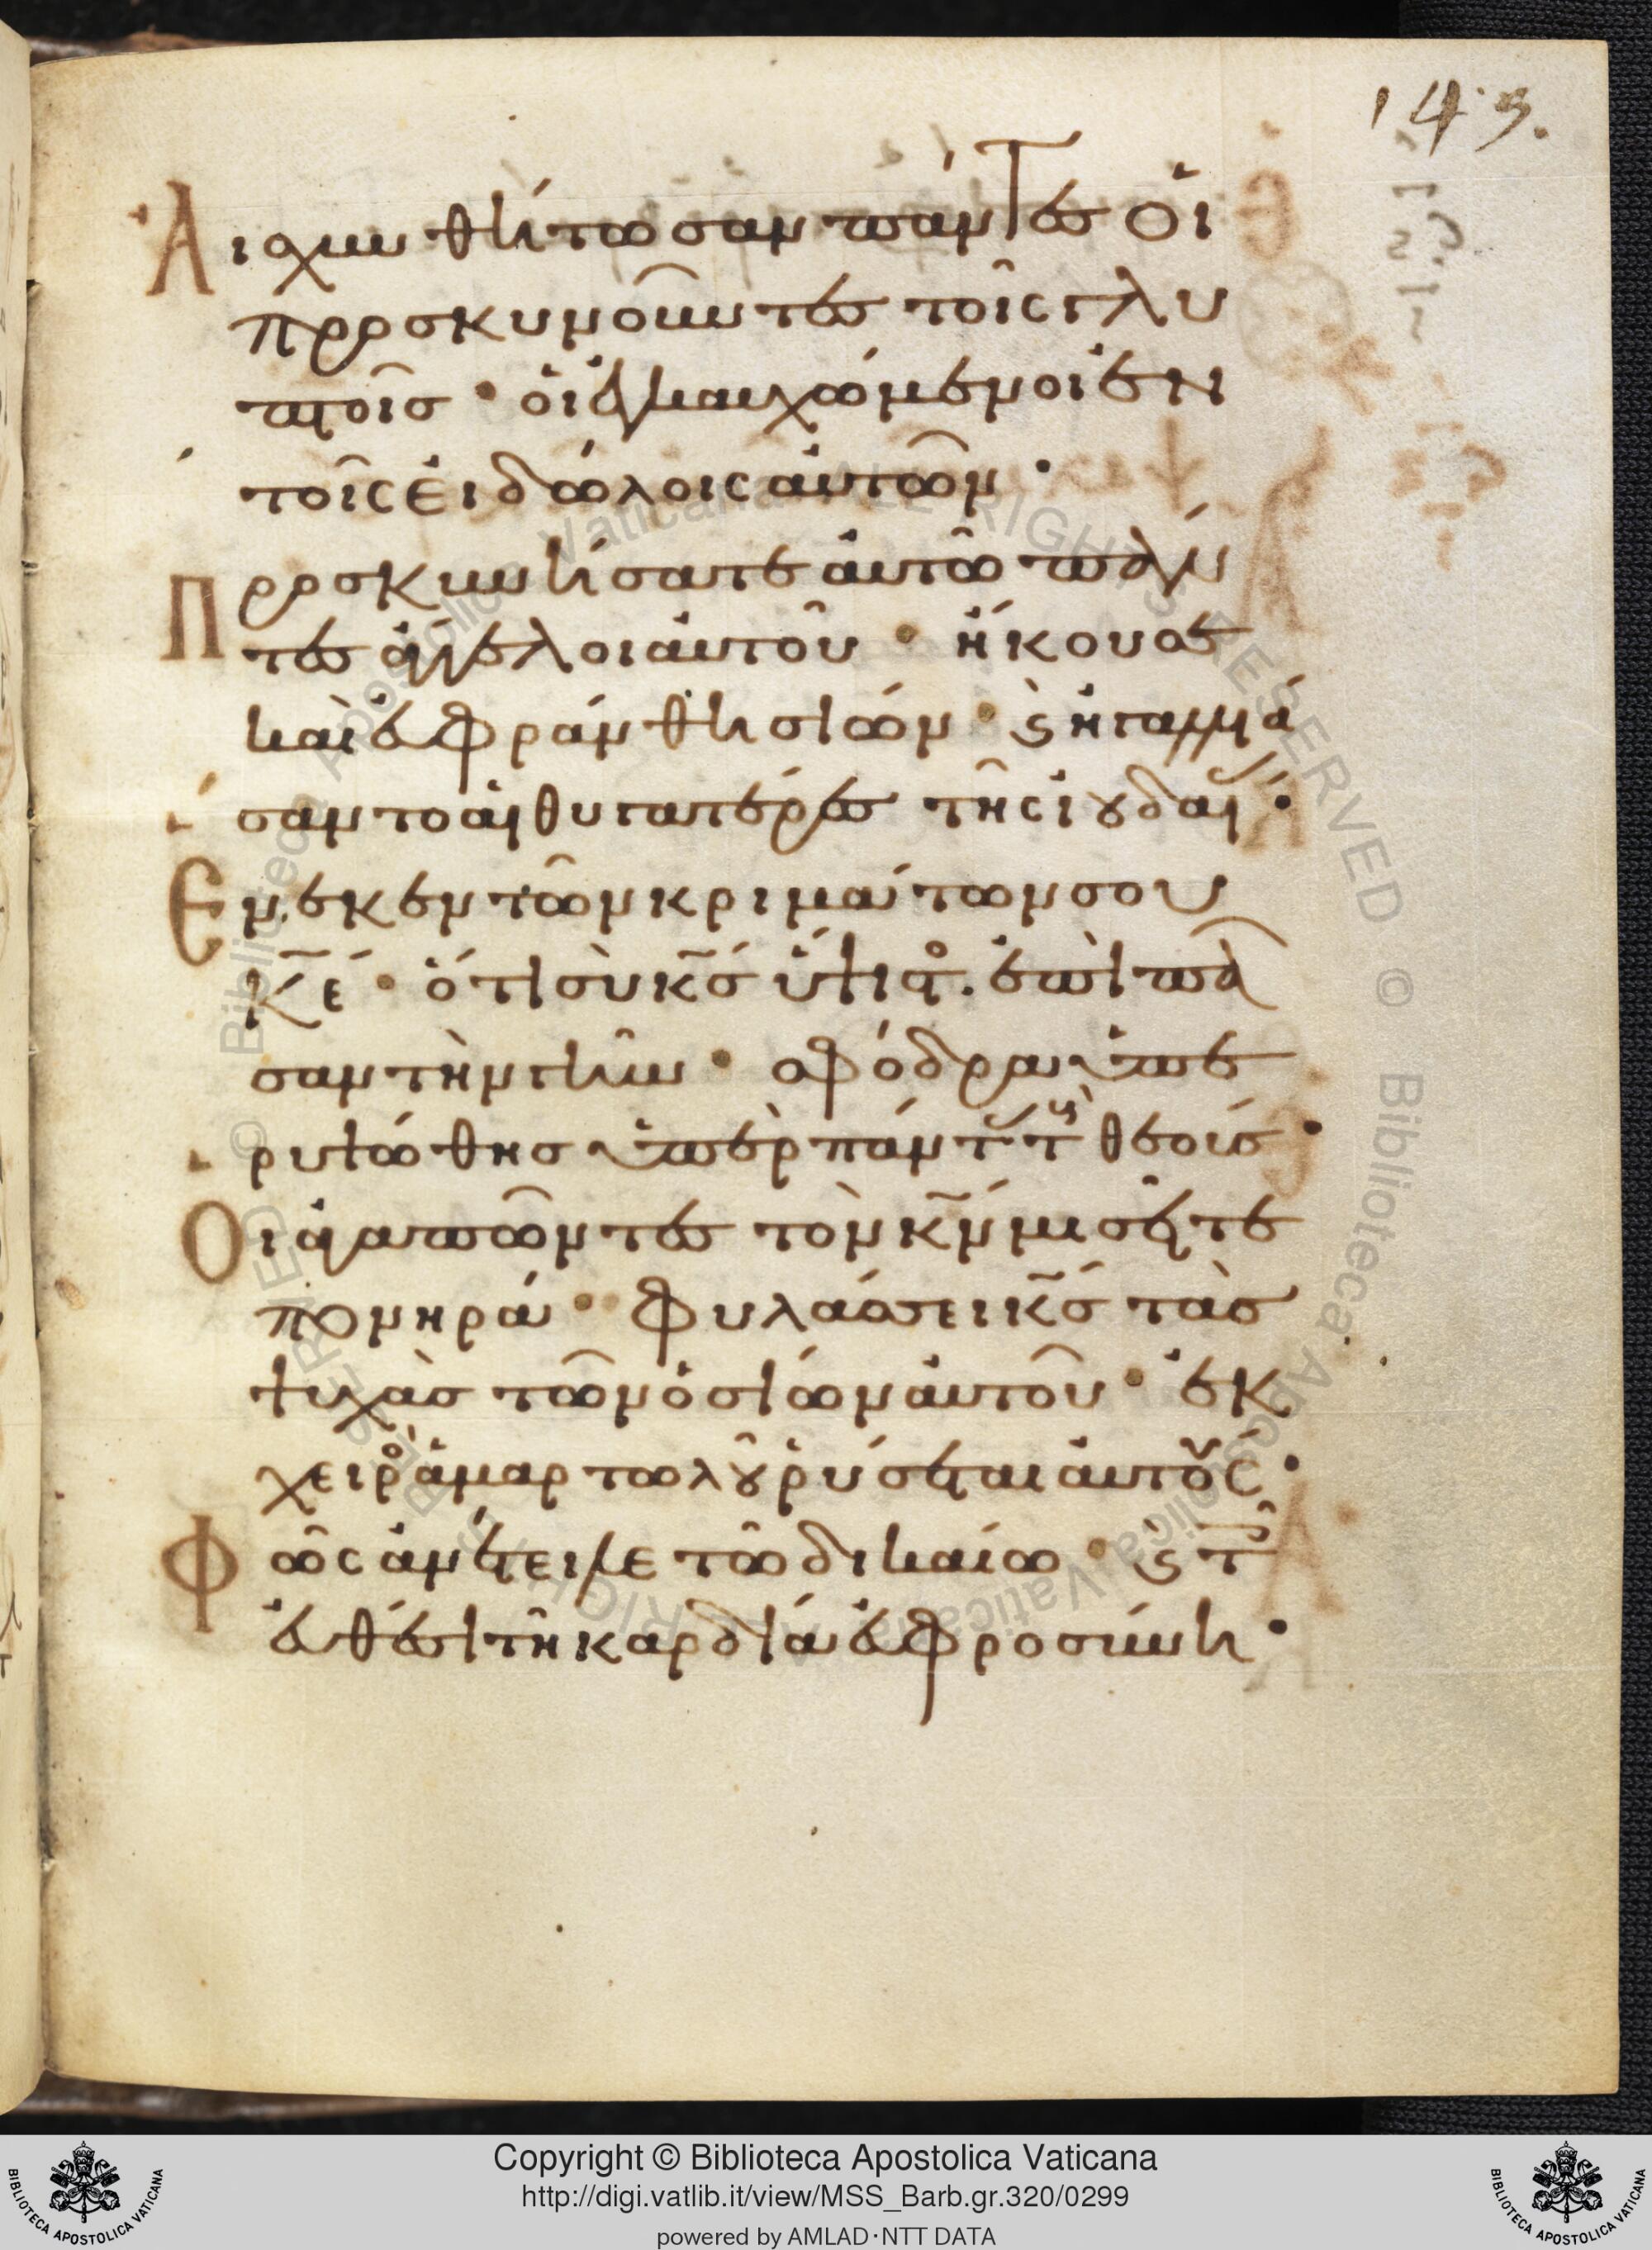 149.
Αἰσχυνθήτωσαν πάντες οἱ
προσκυνοῦντες τοῖς γλυ
πτοῖς · οἱ ἐγκαυχώμενοι ἐν
τοῖς εἰδώλοις αὐτῶν ·
Προσκυνήσατε αὐτῶ πάν
τες ἄγγελοι αὐτοῦ · ἤκουσε
καὶ εὐφράνθη σιών · ϗ ἠγαλλιά
σαντο αἱ θυγατέρες τῆς ἰουδαί ·
Ἕνεκεν τῶν κριμάτων σου
κ̅ε̅ · ὅτι σὺ κ̅ς̅ ὕψιστ. ἐπὶ πᾶ
σαν τὴν γῆν · σφόδρα ὑπε
ρυψώθης ὑπὲρ πάντ τ θεούς ·
Οἱ ἀγαπῶντες τὸν κ̅ν̅ μισεῖτε
πονηρά · φυλάσσει κ̅ς̅ τὰς
ψυχὰς τῶν ὁσίων αὐτοῦ · ἐκ
χειρὸ ἁμαρτωλοῦ ῥύσεται αὐτούς ·
Φῶς ἀνέτειλε τῶ δικαίω · ϗ τ
εὐθέσι τῆ καρδία εὐφροσύνη ·
Copyright © Biblioteca Apostolica Vaticana
http://digi.vatlib.it/view/MSS_Barb.gr.320/0299
powered by AMLAD·NTT DATA
BIBLIOTECA APOSTOLICA VATICANA
BIBLIOTECA APOSTOLICA VATICANA